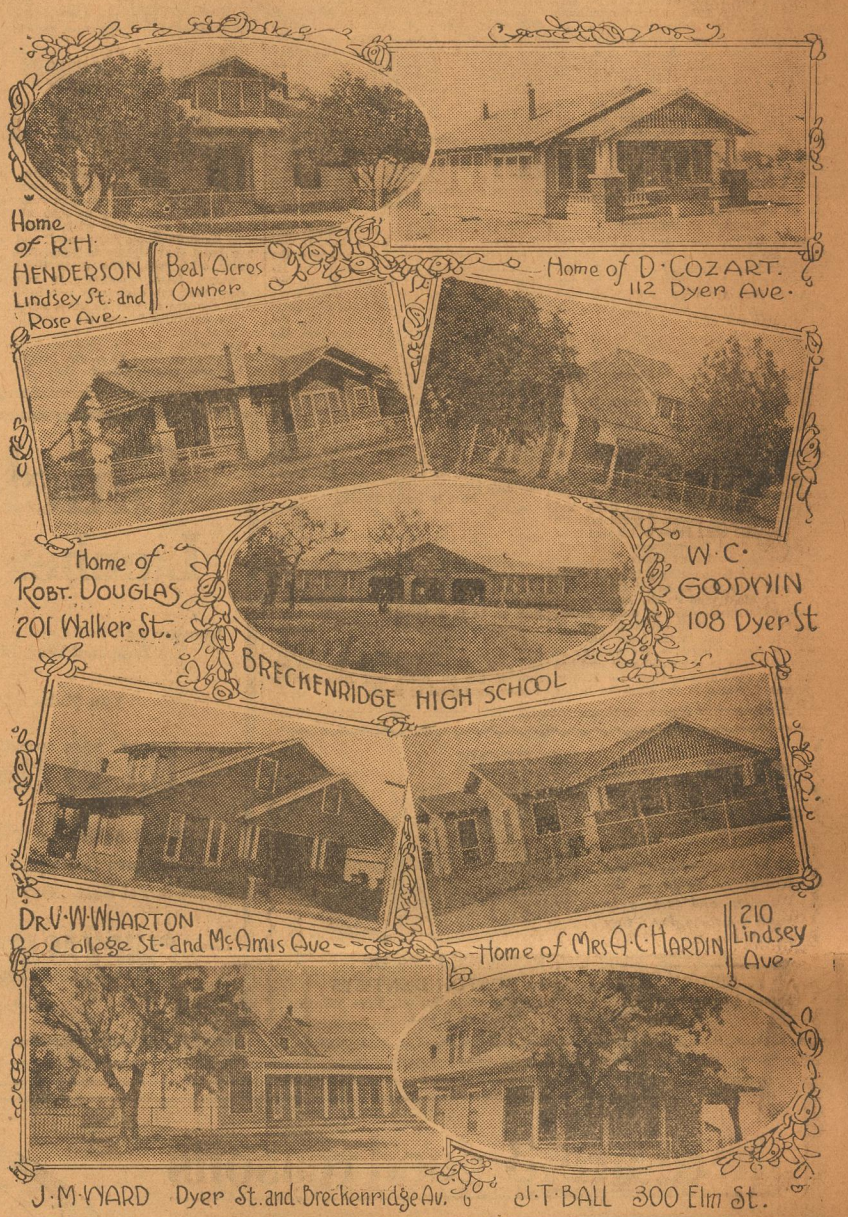 Home
of R·H·
HENDERSON
Lindsey St. and
Rose Ave.
Beal Acres
Owner
Home of D·COZART.
112 Dyer Ave.
Home of
ROBT. DOUGLAS
201 Walker St.
W·C·
GOODWIN
108 Dyer St
BRECKENRIDGE HIGH SCHOOL
DR.V·W·WHARTON
College St. and McAmis Ave-
Home of MRS A·C·HARDIN
210
Lindsey
Ave.
J·M·WARD Dyer St. and Breckenridge Av.
J·T·BALL 300 Elm St.